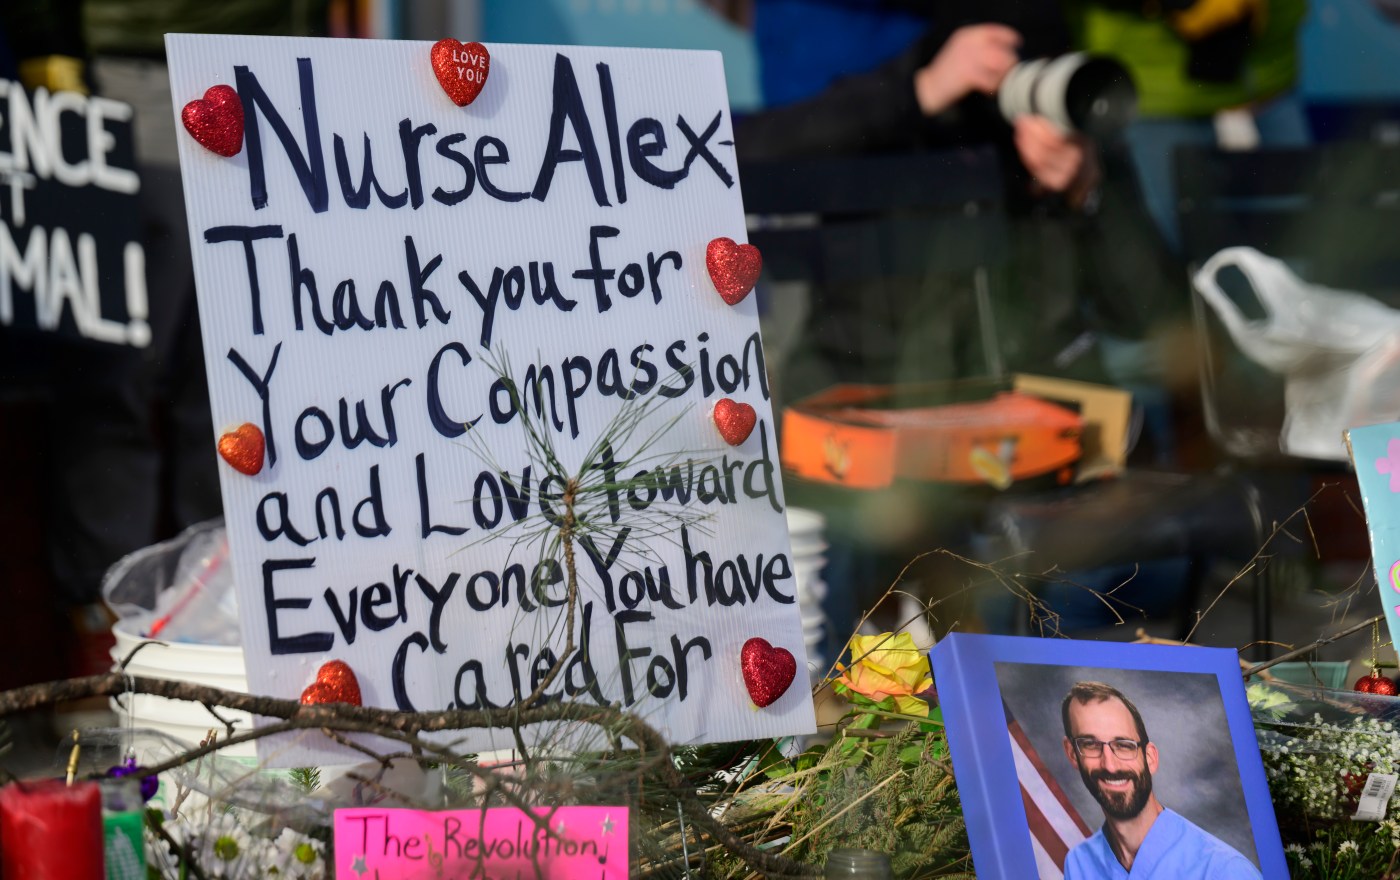 LOVE
YOU
Nurse Alex
Thank you for
Your Compassion
and Love toward
Everyone You have
Cared For
The Revolution